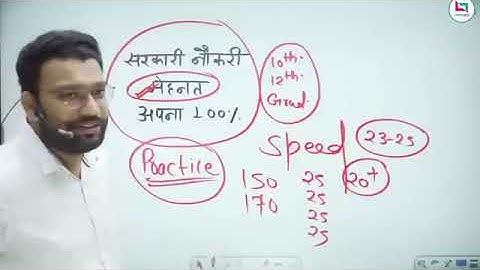 सरकारी नौकरी
मेहनत
अपना 100%
10th.
12th.
Grad.
Practice
Speed
23-25
150 25 20+
170 25
25
25